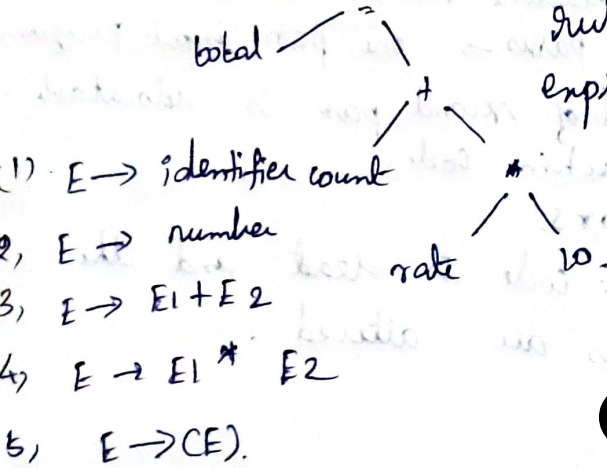 =
total
+
1) E → identifier count
*
2, E → number
rate 10
3, E → E1 + E2
4, E → E1 * E2
5, E → (E).